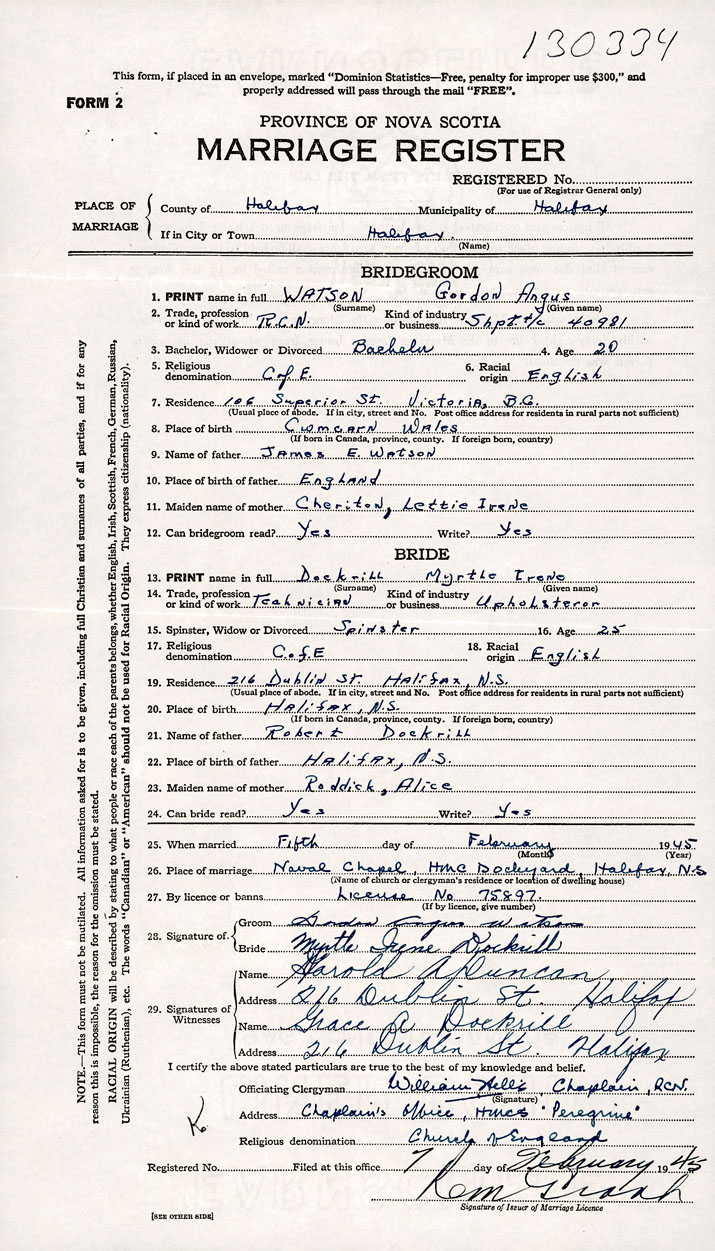 130334
This form, if placed in an envelope, marked "Dominion Statistics—Free, penalty for improper use $300," and
properly addressed will pass through the mail "FREE".
FORM 2
PROVINCE OF NOVA SCOTIA
MARRIAGE REGISTER
REGISTERED No.
(For use of Registrar General only)
PLACE OF MARRIAGE
County of Halifax Municipality of Halifax
If in City or Town Halifax
(Name)
BRIDEGROOM
1. PRINT name in full WATSON Gordon Angus
(Surname) (Given name)
2. Trade, profession or kind of work R.C.N. Kind of industry or business Shpt 4/c 40981
3. Bachelor, Widower or Divorced Bachelor 4. Age 20
5. Religious denomination C of E. 6. Racial origin English
7. Residence 106 Superior St. Victoria, B.C.
(Usual place of abode. If in city, street and No. Post office address for residents in rural parts not sufficient)
8. Place of birth Cwmcarn Wales
(If born in Canada, province, county. If foreign born, country)
9. Name of father James E. Watson
10. Place of birth of father England
11. Maiden name of mother Cheriton, Lettie Irene
12. Can bridegroom read? Yes Write? Yes
BRIDE
13. PRINT name in full Dockrill Myrtle Irene
(Surname) (Given name)
14. Trade, profession or kind of work Technician Kind of industry or business Upholsteror
15. Spinster, Widow or Divorced Spinster 16. Age 25
17. Religious denomination C. of E 18. Racial origin English
19. Residence 216 Dublin St. Halifax, N.S.
(Usual place of abode. If in city, street and No. Post office address for residents in rural parts not sufficient)
20. Place of birth Halifax, N.S.
(If born in Canada, province, county. If foreign born, country)
21. Name of father Robert Dockrill
22. Place of birth of father Halifax, N.S.
23. Maiden name of mother Roddick, Alice
24. Can bride read? Yes Write? Yes
25. When married Fifth day of February 1945
(Month) (Year)
26. Place of marriage Naval Chapel, HMC Dockyard, Halifax, N.S
(Name of church or clergyman's residence or location of dwelling house)
27. By licence or banns License No 75897.
(If by licence, give number)
28. Signature of
Groom Gordon Angus Watson
Bride Myrtle Irene Dockrill
29. Signatures of Witnesses
Name Harold A Duncan
Address 216 Dublin St. Halifax
Name Grace A Dockrill
Address 216 Dublin St. Halifax
I certify the above stated particulars are true to the best of my knowledge and belief.
Officiating Clergyman William Chaplain, RCN.
(Signature)
Address Chaplain's Office, HMCS "Peregrine"
Religious denomination Church of England
Registered No. Filed at this office 7 day of February 1945
Signature of Issuer of Marriage Licence
[SEE OTHER SIDE]
NOTE.—This form must not be mutilated. All information asked for is to be given, including full Christian and surnames of all parties, and if for any
reason this is impossible, the reason for the omission must be stated.
RACIAL ORIGIN will be described by stating to what people or race each of the parents belongs, whether English, Irish, Scottish, French, German, Russian,
Ukrainian (Ruthenian), etc. The words "Canadian" or "American" should not be used for Racial Origin. They express citizenship (nationality).